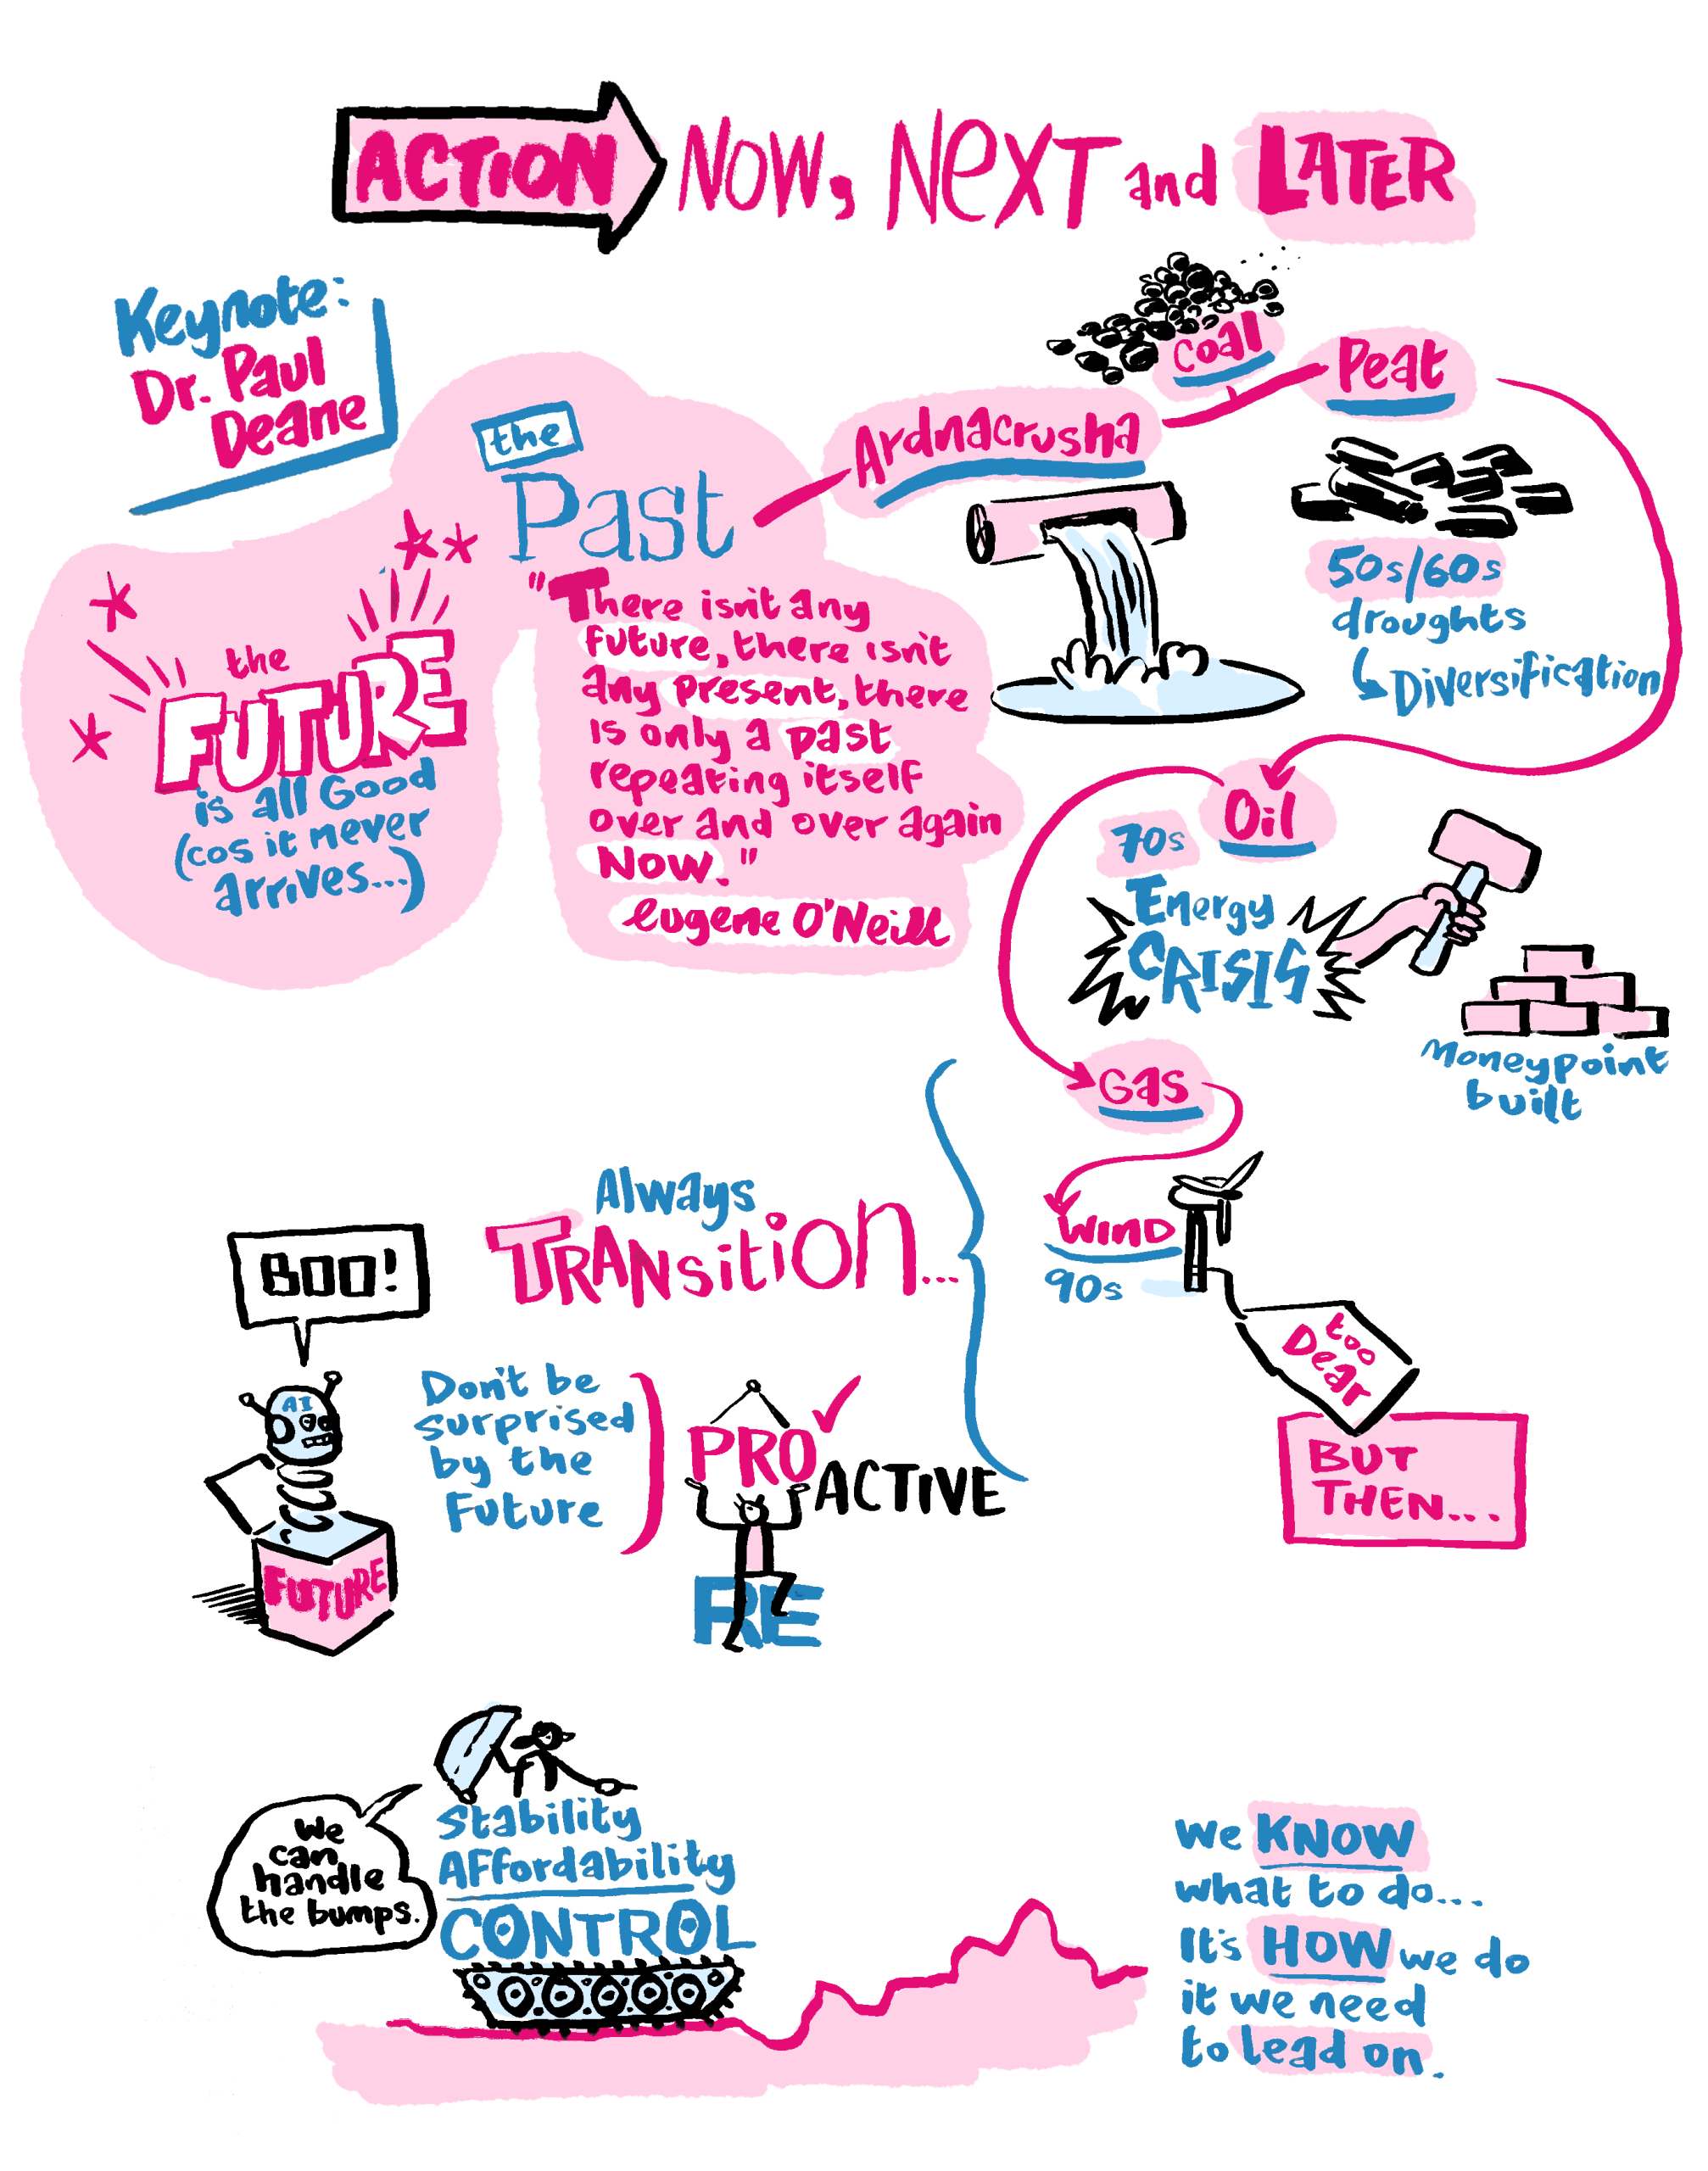 ACTION NOW, NEXT and LATER
Keynote:
Dr. Paul
Deane
the
Past
"There isn't any
future, there isn't
any present, there
is only a past
repeating itself
over and over again
NOW."
Eugene O'Neill
the
FUTURE
is all Good
(cos it never
arrives...)
Ardnacrusha
Coal
Peat
50s/60s
droughts
Diversification
Oil
70s
Energy
CRISIS
Moneypoint
built
Gas
WIND
90s
too
Dear
BUT
THEN...
Always
TRANsition...
BOO!
AI
FUTURE
Don't be
surprised
by the
Future
PRO
ACTIVE
RE
We
can
handle
the bumps.
Stability
Affordability
CONTROL
We KNOW
what to do...
It's HOW we do
it we need
to lead on.